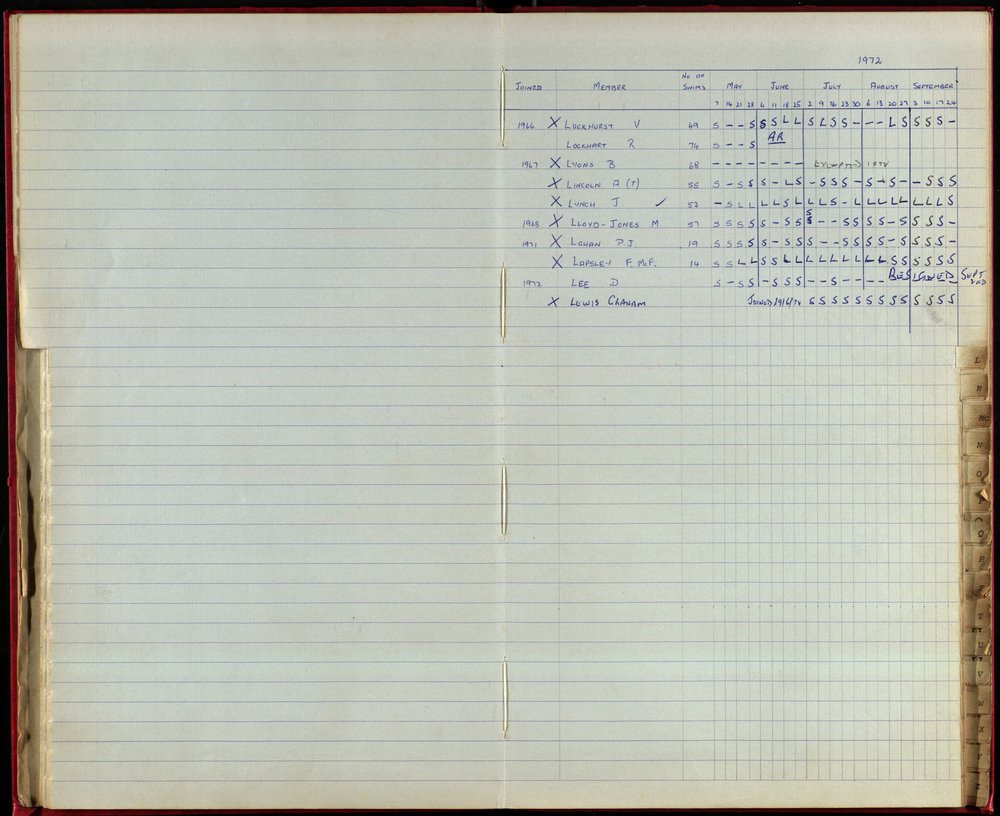 1972
JOINED MEMBER NO. OF SWIMS MAY JUNE JULY AUGUST SEPTEMBER
7 14 21 28 4 11 18 25 2 9 16 23 30 6 13 20 27 3 10 17 24
1966 X LUCKHURST V 49 S - - S S S L L S L S S - - - L S S S S -
LOCKHART R 74 S - - S AR
1967 X LYONS B 68 - - - - - - - - EXEMPTED 1972
X LINCOLN A (T) 55 S - S S S - L S - S S S - S - S - - S S S
X LYNCH J ✓ 53 - S L L L L S L L L S - L L L L L L L L S
1968 X LLOYD-JONES M 57 S S S S S - S S S - - S S S S - S S S S -
1971 X LOHAN P.J. 19 S S S S S - S S S - - S S S S - S S S S -
X LAPSLEY F. McF. 14 S S L L S S L L L L L L L L L S S S S S S
1972 LEE D S - S S - S S S - - S - - - - RESIGNED SEPT 2ND
X LEWIS GRAHAM JOINED S S S S S S S S S S S S S
L
M
Mc
N
O
P
Q
R
S
T
U
V
W
X
Y
Z